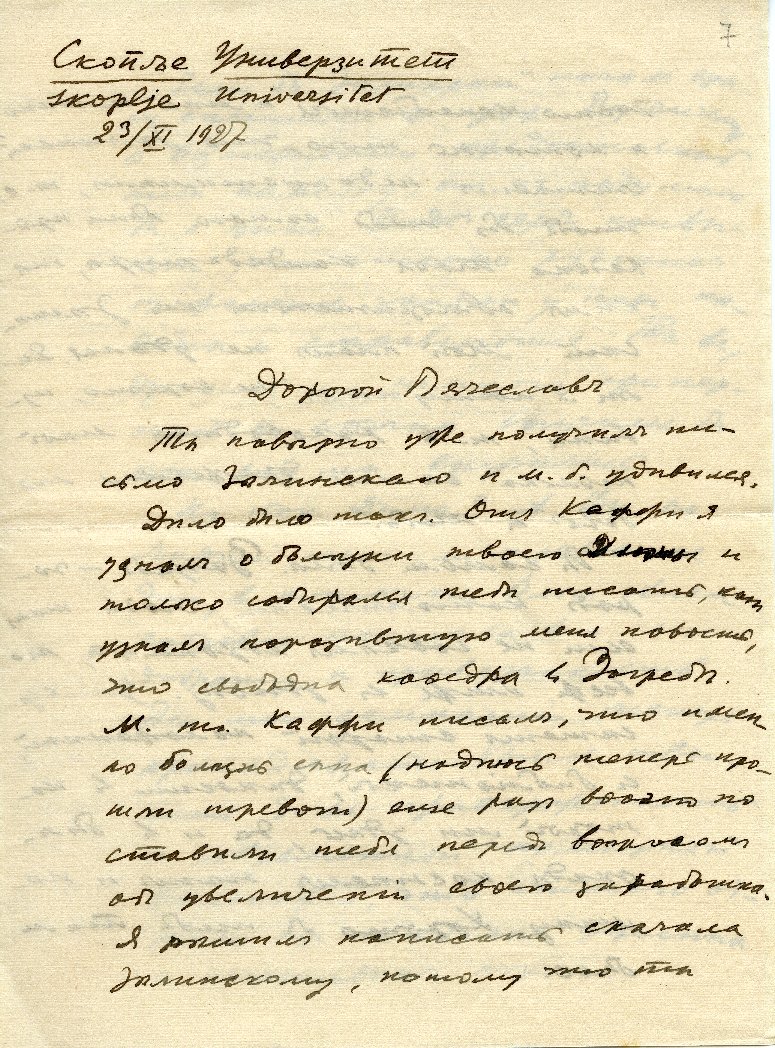 7
Скопље Универзитет
Skoplje Universitet
23/XI 1927
Дорогой Вячеславъ
Ты навѣрно уже получилъ пи-
сьмо Зѣлинскаго и м. б. удивился.
Дѣло было такъ. Отъ Каффи я
узналъ о болѣзни твоего и
только собирался тебѣ писать, какъ
узналъ поразившую меня новость,
что свободна кафедра въ Загребѣ.
М. пр. Каффи писалъ, что имен-
но болѣзнь сына (надѣюсь теперь про-
шли тревоги) еще разъ по
ставили тебя передъ вопросомъ
объ увеличенiи своего заработка.
Я рѣшилъ написать сначала
Зѣлинскому, потому что ты